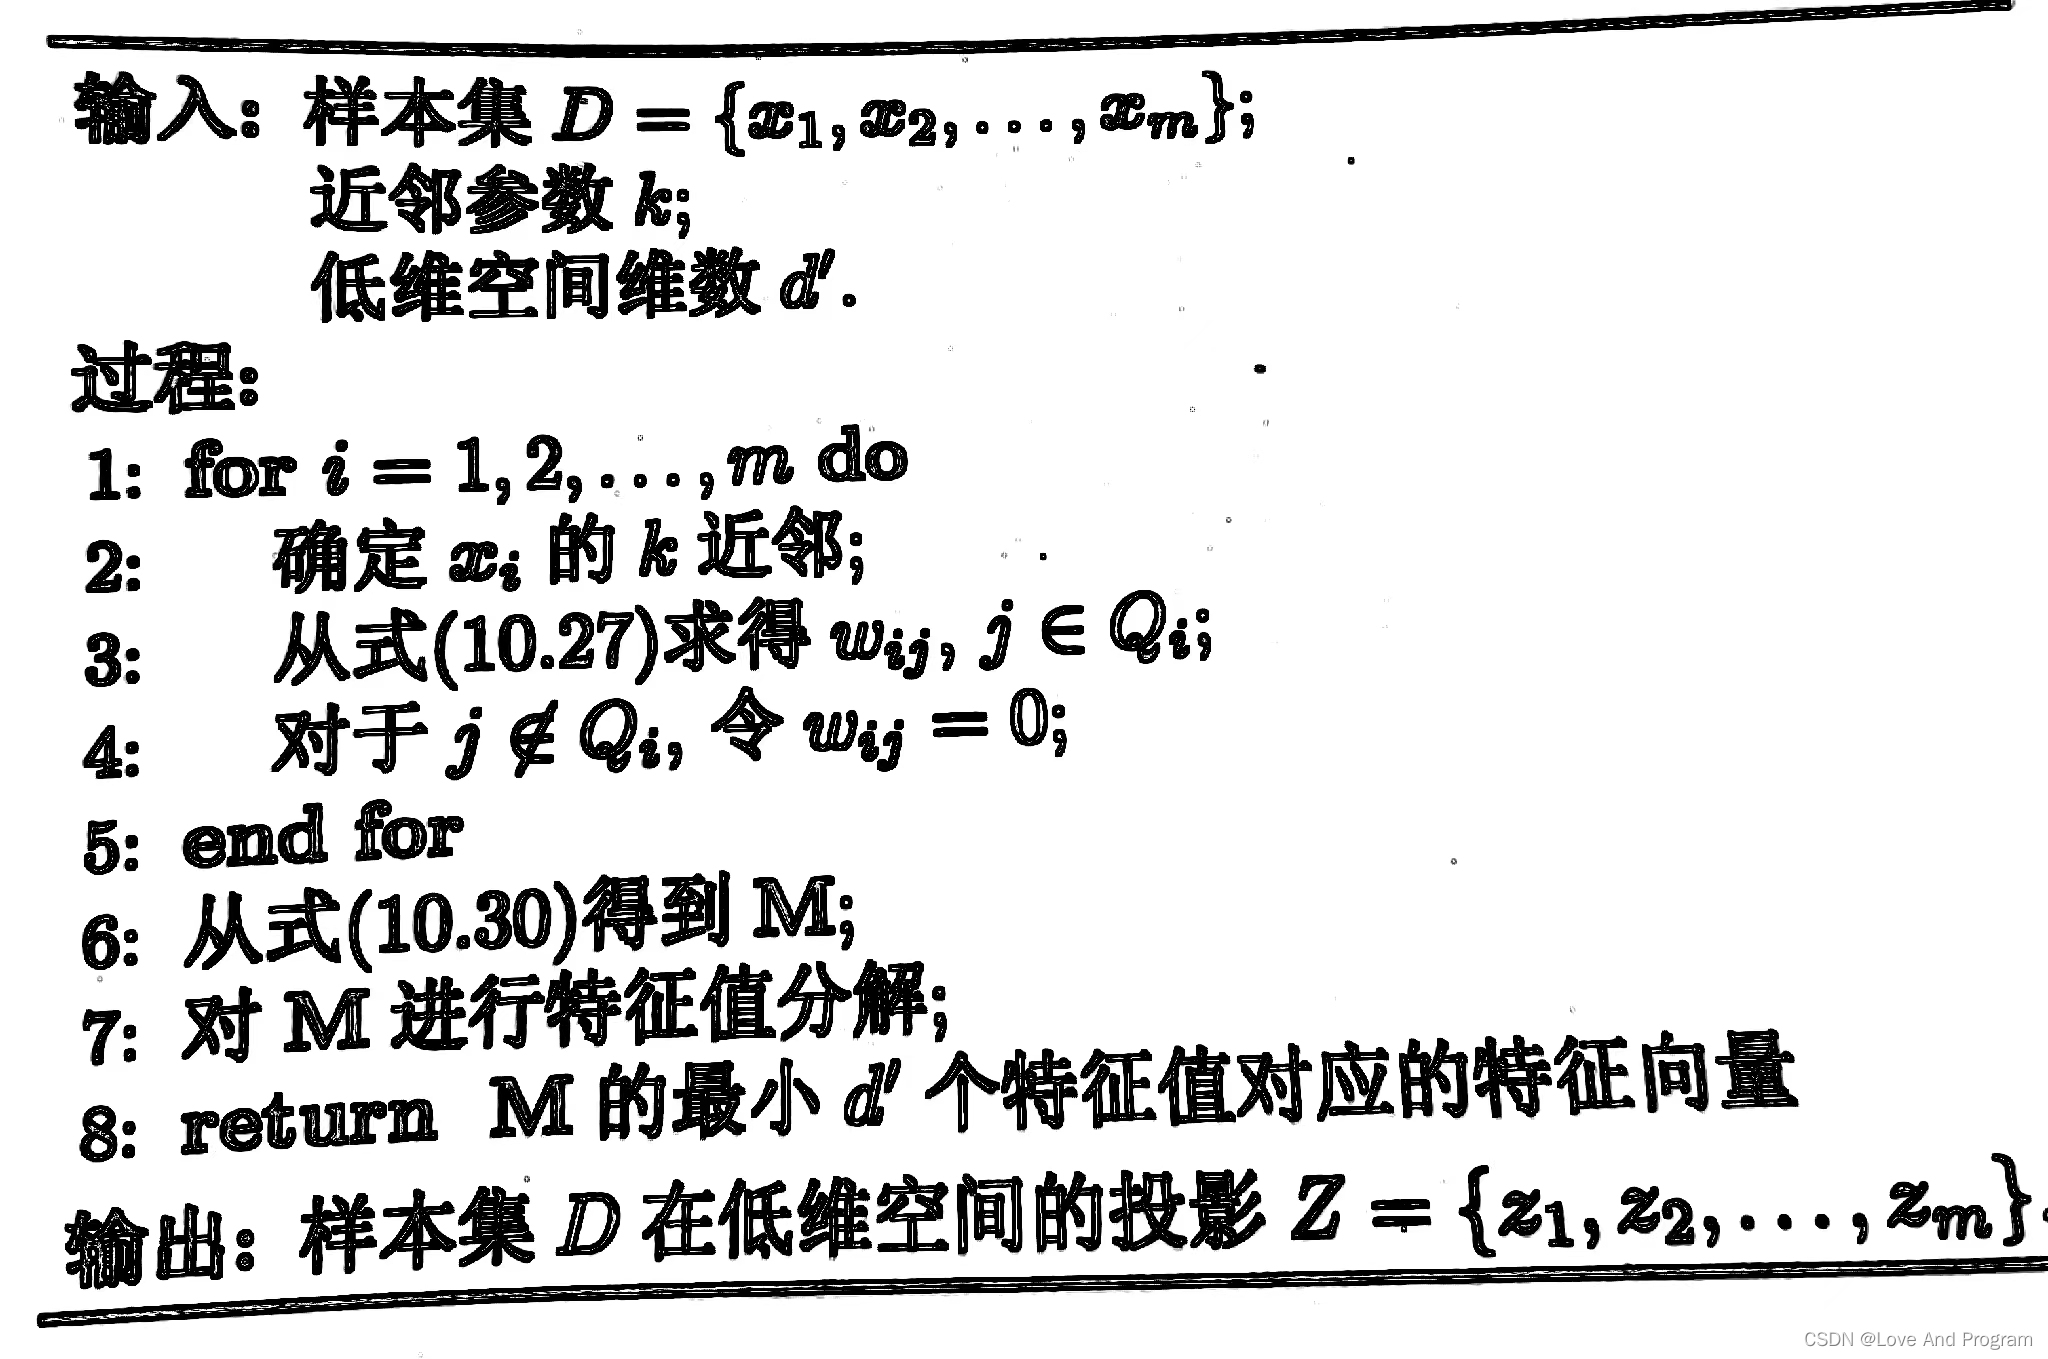 输入: 样本集 D = {x₁, x₂, ..., xₘ};
近邻参数 k;
低维空间维数 d′.
过程:
1: for i = 1, 2, ..., m do
2: 确定 xᵢ 的 k 近邻;
3: 从式(10.27)求得 wᵢⱼ, j ∈ Qᵢ;
4: 对于 j ∉ Qᵢ, 令 wᵢⱼ = 0;
5: end for
6: 从式(10.30)得到 M;
7: 对 M 进行特征值分解;
8: return M 的最小 d′ 个特征值对应的特征向量
输出: 样本集 D 在低维空间的投影 Z = {z₁, z₂, ..., zₘ}.
CSDN @Love And Program